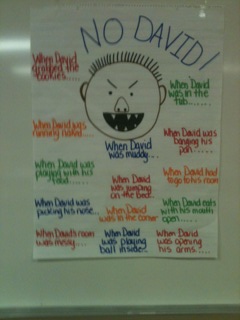 NO DAVID!
When David
grabbed the
cookies...
When David
was in the
tub......
When David was
running naked...
When David
was muddy...
When David was
banging his
pan......
When David was
playing with his
food.....
When David
was jumping
on the bed...
When David had
to go to his room
When David was
picking his nose...
When David
was in the corner
When David eats
with his mouth
open.....
When David's room
was messy....
When David
was playing
ball inside...
When David
was opening
his arms.....